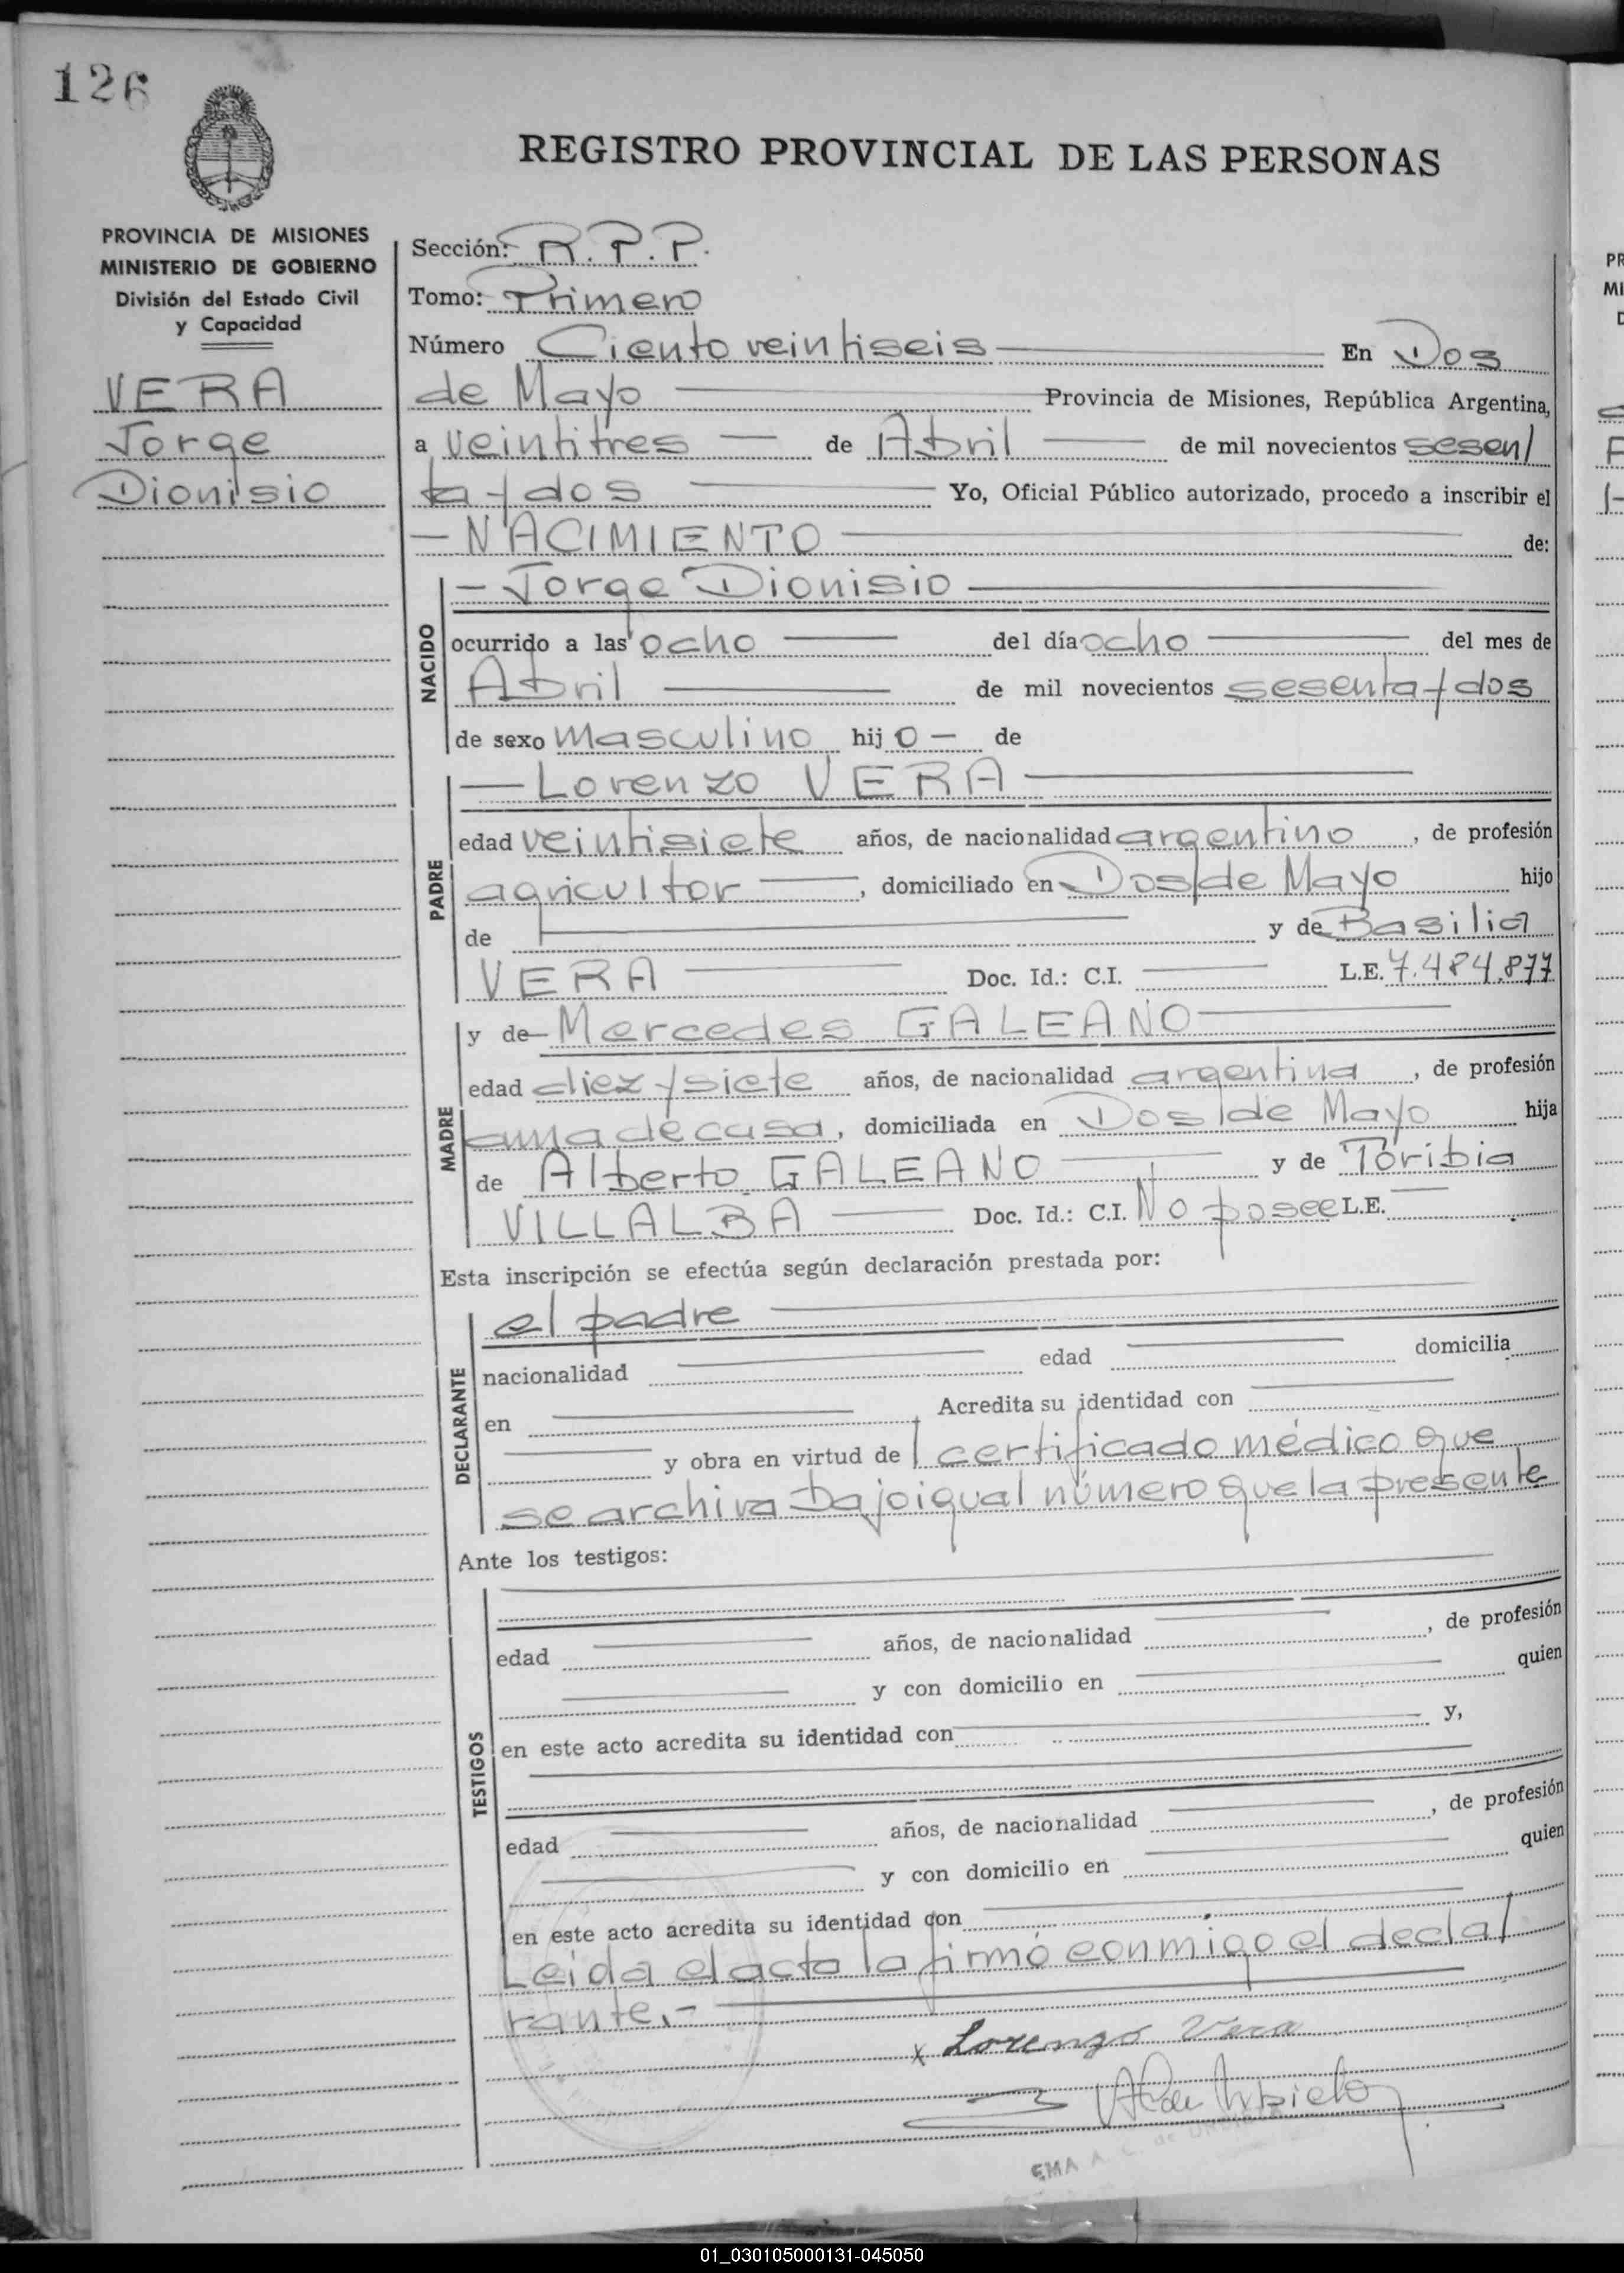 126
REGISTRO PROVINCIAL DE LAS PERSONAS
PROVINCIA DE MISIONES
MINISTERIO DE GOBIERNO
División del Estado Civil
y Capacidad
VERA
Jorge
Dionisio
Sección: R.P.P.
Tomo: Primero
Número Ciento veintiseis En Dos
de Mayo Provincia de Misiones, República Argentina,
a veintitres de Abril de mil novecientos sesen/
ta y dos Yo, Oficial Público autorizado, procedo a inscribir el
NACIMIENTO de:
NACIDO
Jorge Dionisio
ocurrido a las ocho del día ocho del mes de
Abril de mil novecientos sesenta y dos
de sexo masculino hijo de
PADRE
Lorenzo VERA
edad veintisiete años, de nacionalidad argentino, de profesión
agricultor, domiciliado en Dos de Mayo hijo
de y de Basilia
VERA Doc. Id.: C.I. L.E. 7.484.877
MADRE
y de Mercedes GALEANO
edad diez y siete años, de nacionalidad argentina, de profesión
ama de casa, domiciliada en Dos de Mayo hija
de Alberto GALEANO y de Toribia
VILLALBA Doc. Id.: C.I. No posee L.E.
Esta inscripción se efectúa según declaración prestada por:
DECLARANTE
el padre
nacionalidad edad domicilia
en Acredita su identidad con
y obra en virtud de certificado médico que
se archiva bajo igual número que la presente
Ante los testigos:
TESTIGOS
edad años, de nacionalidad , de profesión
y con domicilio en quien
en este acto acredita su identidad con y,
edad años, de nacionalidad , de profesión
y con domicilio en quien
en este acto acredita su identidad con
Leida el acta la firmó conmigo el decla/
rante.-
x Lorenzo Vera
EMA A. C. de
PR
MI
01_030105000131-045050